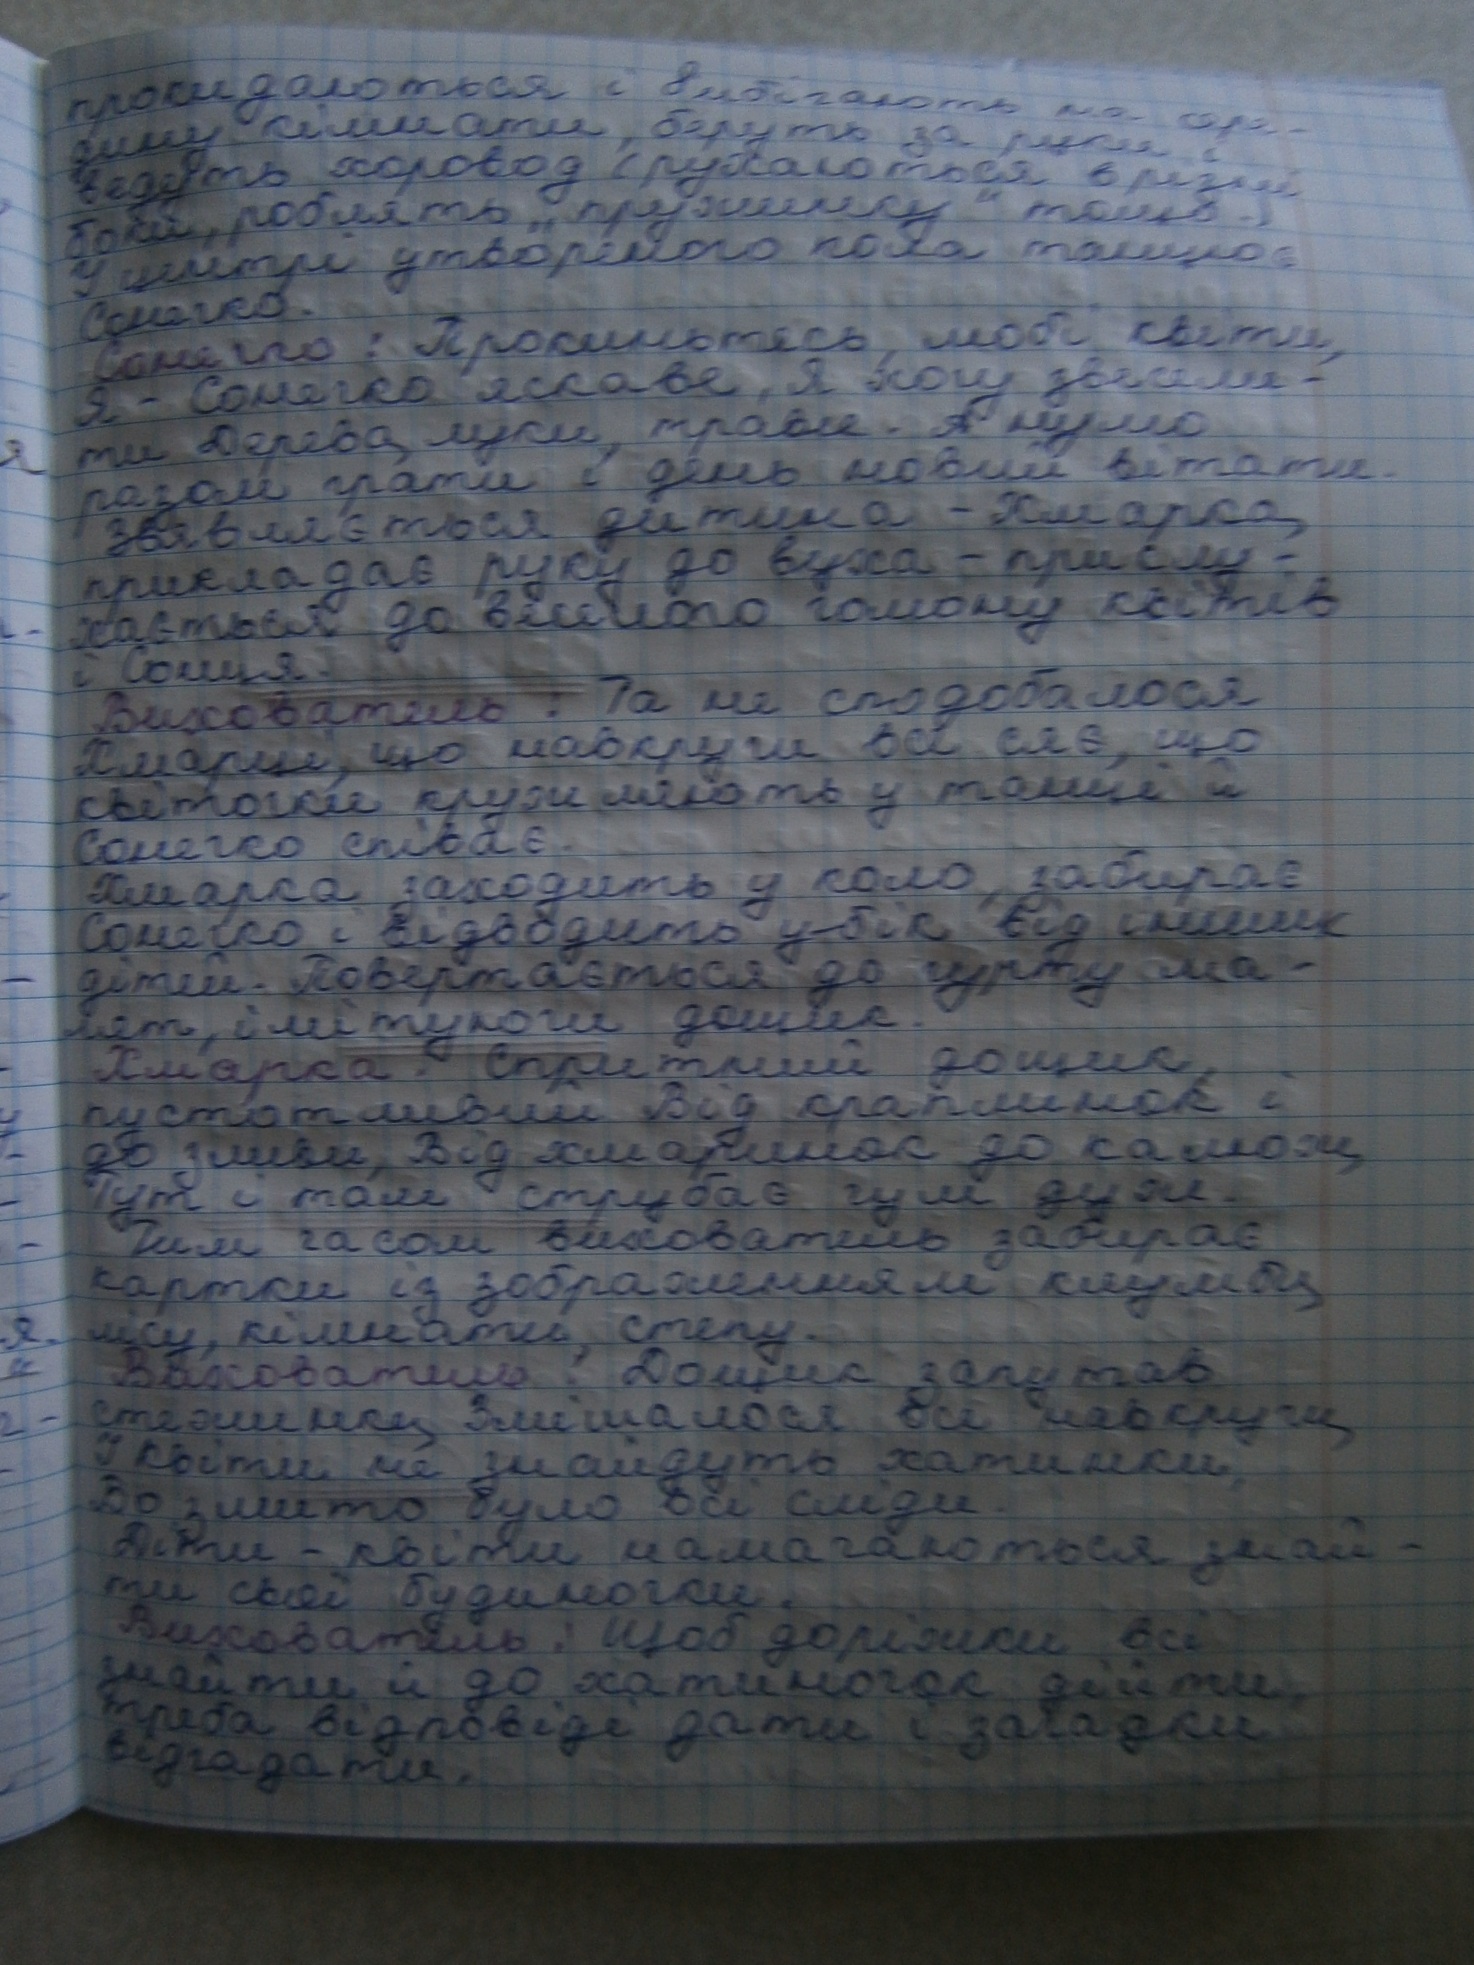 прокидаються і вибігають на сере-
дину кімнати, беруть за руки і
ведуть хоровод (рухаються в різні
боки, роблять „пружинку" тощо.)
У центрі утвореного кола танцює
Сонечко.
Сонечко: Прокиньтесь, любі квіти,
Я - Сонечко яскаве, Я хочу звесели-
ти Дерева, луки, трави. А нумо
разом грати і день новий вітати.
Звявляється дитина - Хмарка,
прикладає руку до вуха - прислу-
хається до веселого гомону квітів
і Сонця.
Вихователь: Та не сподобалося
Хмарці, що навкруги всі сяє, що
квіточки кружляють у танці й
Сонечко співає.
Хмарка заходить у коло, забирає
Сонечко і відводить у-бік від інших
дітей. Повертається до гурту ма-
лят, імітуючи дощик.
Хмарка: Спритний дощик,
пустотливий Від краплинок і
до зливи, Від хмаринок до калюж,
Тут і там стрибає чум дуж.
Тим часом вихователь забирає
картки із зображенням клумби,
лісу, кімнати, степу.
Вихователь: Дощик запутав
стежинки, Змішалося всі навкруги,
І квіти не знайдуть хатинки,
Бо змито було всі сліди.
Діти - квіти намагаються знай-
ти свої будиночки.
Вихователь: Щоб доріжки всі
знайти й до хатиночок дійти,
треба відповіді дати і загадки
відгадати.